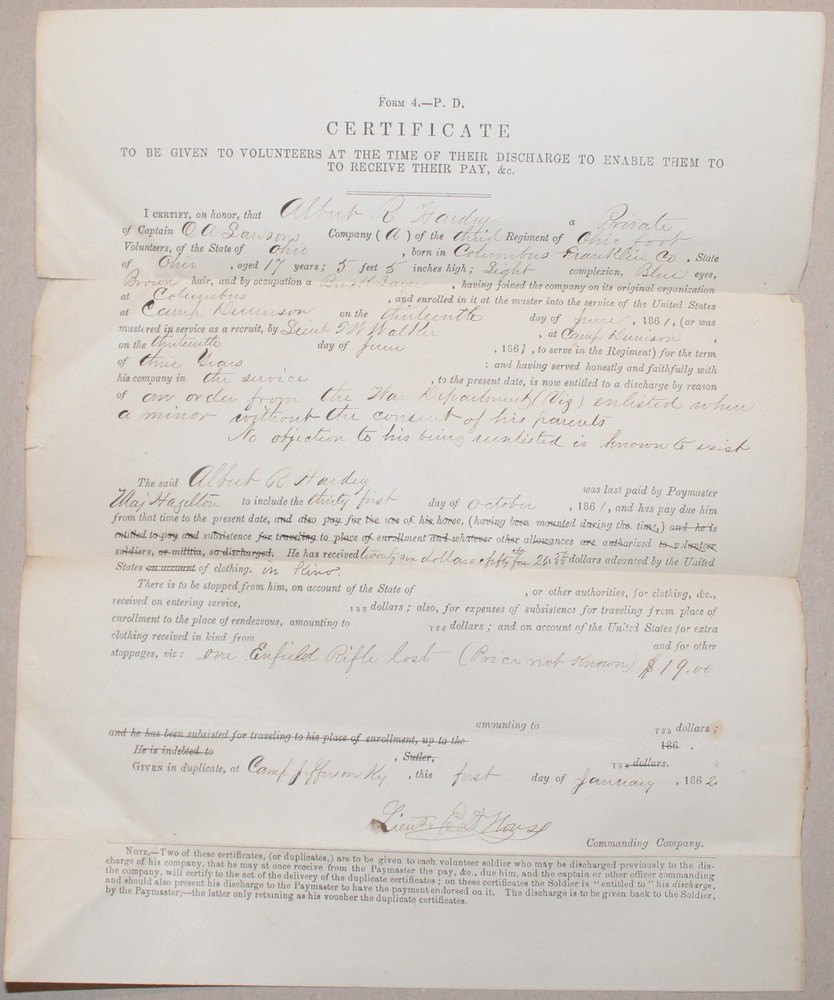 FORM 4.—P. D.
CERTIFICATE
TO BE GIVEN TO VOLUNTEERS AT THE TIME OF THEIR DISCHARGE TO ENABLE THEM TO
TO RECEIVE THEIR PAY, &c.
I CERTIFY, on honor, that Albert R Hardey a Private
of Captain O A Lawsons Company (A) of the third Regiment of Ohio foot
Volunteers, of the State of Ohio, born in Columbus Franklin Co, State
of Ohio, aged 17 years; 5 feet 5 inches high; Light complexion, Blue eyes,
Brown hair, and by occupation a, having joined the company on its original organization
at Columbus, and enrolled in it at the muster into the service of the United States
at Camp Dennison on the thirteenth day of June, 1861, (or was
mustered in service as a recruit, by Lieut T W Walker, at Camp Dennison,
on the thirteenth day of June, 1861, to serve in the Regiment) for the term
of three Years: and having served honestly and faithfully with
his company in the service, to the present date, is now entitled to a discharge by reason
of an order from the War Department (Viz) enlisted when
a minor without the consent of his parents
No objection to his being reenlisted is known to exist
The said Albert R Hardey was last paid by Paymaster
Maj Hazelton to include the thirty first day of October, 1861, and has pay due him
from that time to the present date, and also pay for the use of his horse, (having been mounted during the time,) and he is
entitled to pay and subsistence for traveling to place of enrollment and whatever other allowances are authorized to volunteer
soldiers, or militia, so discharged. He has received twenty six dollars & fifty 26 dollars advanced by the United
States on account of clothing. in
There is to be stopped from him, on account of the State of, or other authorities, for clothing, &c.,
received on entering service, 100 dollars; also, for expenses of subsistence for traveling from place of
enrollment to the place of rendezvous, amounting to 100 dollars; and on account of the United States for extra
clothing received in kind from and for other
stoppages, viz: one Enfield Rifle lost (Price not Known) $19.00
amounting to 100 dollars;
and he has been subsisted for traveling to his place of enrollment, up to the 186 .
He is indebted to, Sutler, 100 dollars.
GIVEN in duplicate, at Camp Jefferson Ky, this first day of January, 1862
Lieut E D House
Commanding Company.
NOTE.—Two of these certificates, (or duplicates,) are to be given to each volunteer soldier who may be discharged previously to the dis-
charge of his company, that he may at once receive from the Paymaster the pay, &c., due him, and the captain or other officer commanding
the company, will certify to the act of the delivery of the duplicate certificates; on these certificates the Soldier is "entitled to" his discharge,
and should also present his discharge to the Paymaster to have the payment endorsed on it. The discharge is to be given back to the Soldier,
by the Paymaster;—the latter only retuning as his voucher the duplicate certificates.